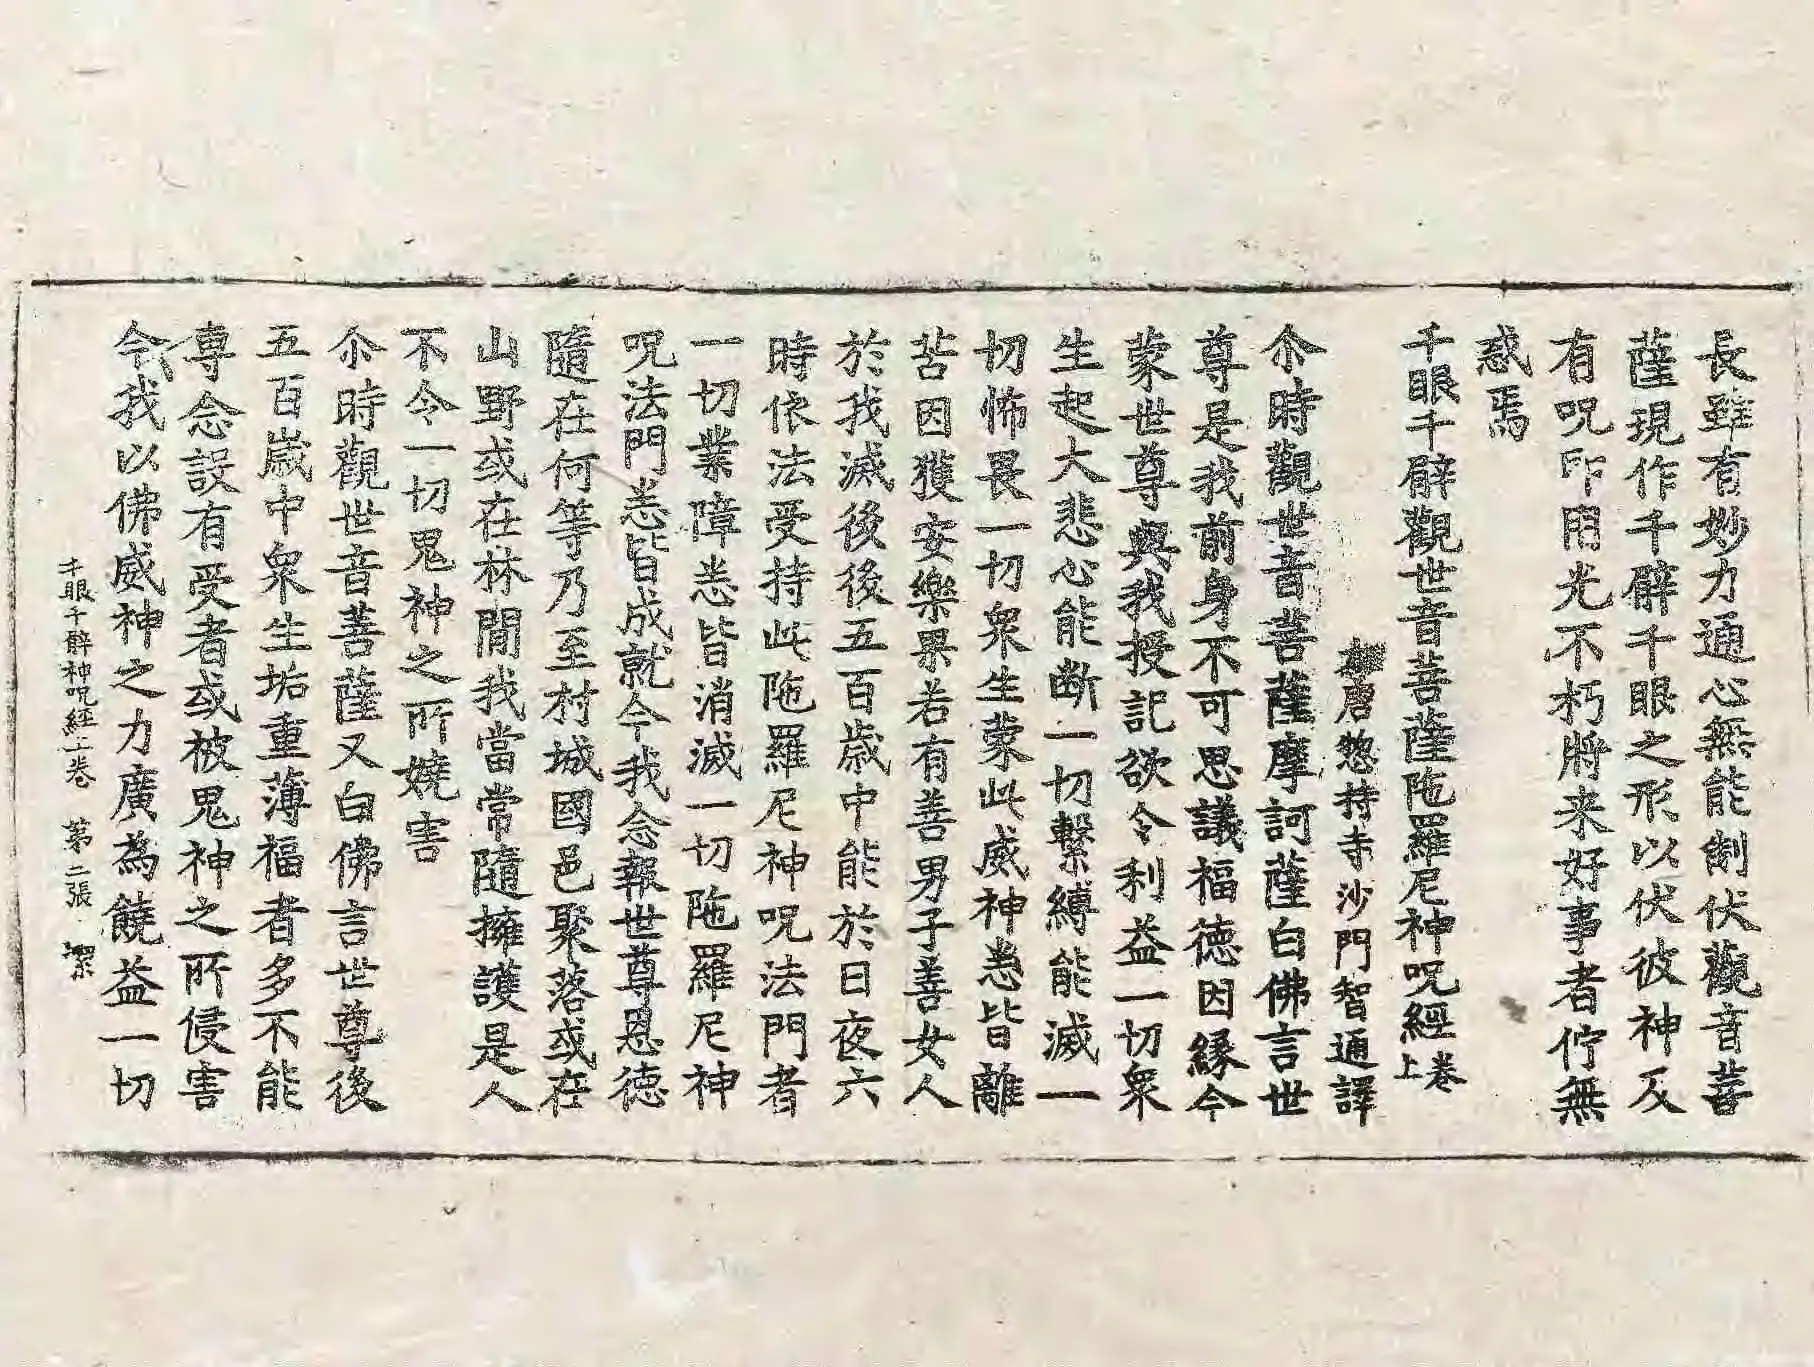 長雖有妙力通心無能制伏觀音菩
薩現作千臂千眼之形以伏彼神及
有呪印用光不朽將来好事者佇無
惑焉
千眼千臂觀世音菩薩陁羅尼神呪經上卷
唐惣持寺沙門智通譯
尒時觀世音菩薩摩訶薩白佛言世
尊是我前身不可思議福德因緣今
蒙世尊與我授記欲令利益一切衆
生起大悲心能断一切繫縛能滅一
切怖畏一切衆生蒙此威神悉皆離
苦因獲安樂果若有善男子善女人
於我滅後後五百歲中能於日夜六
時依法受持此陁羅尼神呪法門者
一切業障悉皆消滅一切陁羅尼神
呪法門悉皆成就今我念報世尊恩德
隨在何等乃至村城國邑聚落或在
山野或在林間我當常隨擁護是人
不令一切鬼神之所嬈害
尒時觀世音菩薩又白佛言世尊後
五百歲中衆生垢重薄福者多不能
專念設有受者或被鬼神之所侵害
今我以佛威神之力廣為饒益一切
千眼千臂神呪經上卷 第二張 潔